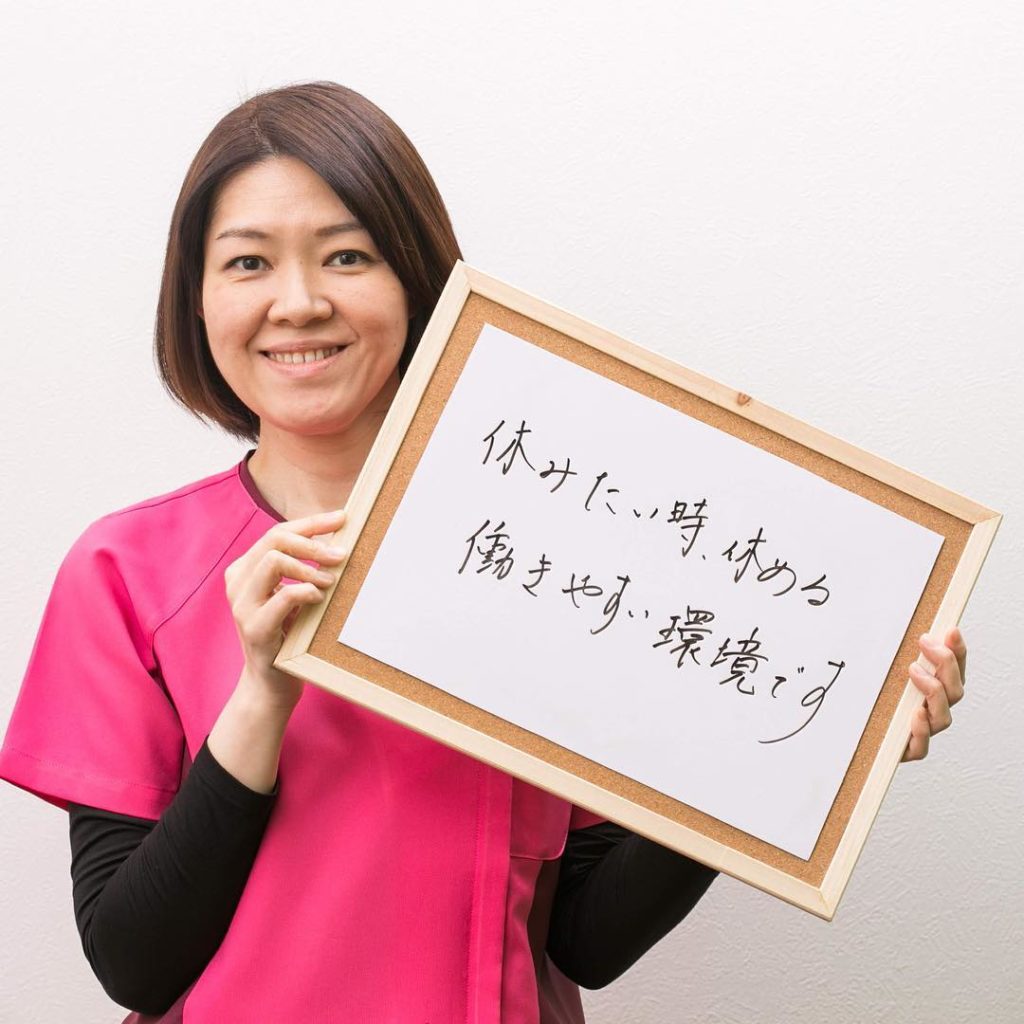 休みたい時、休める
働きやすい環境です